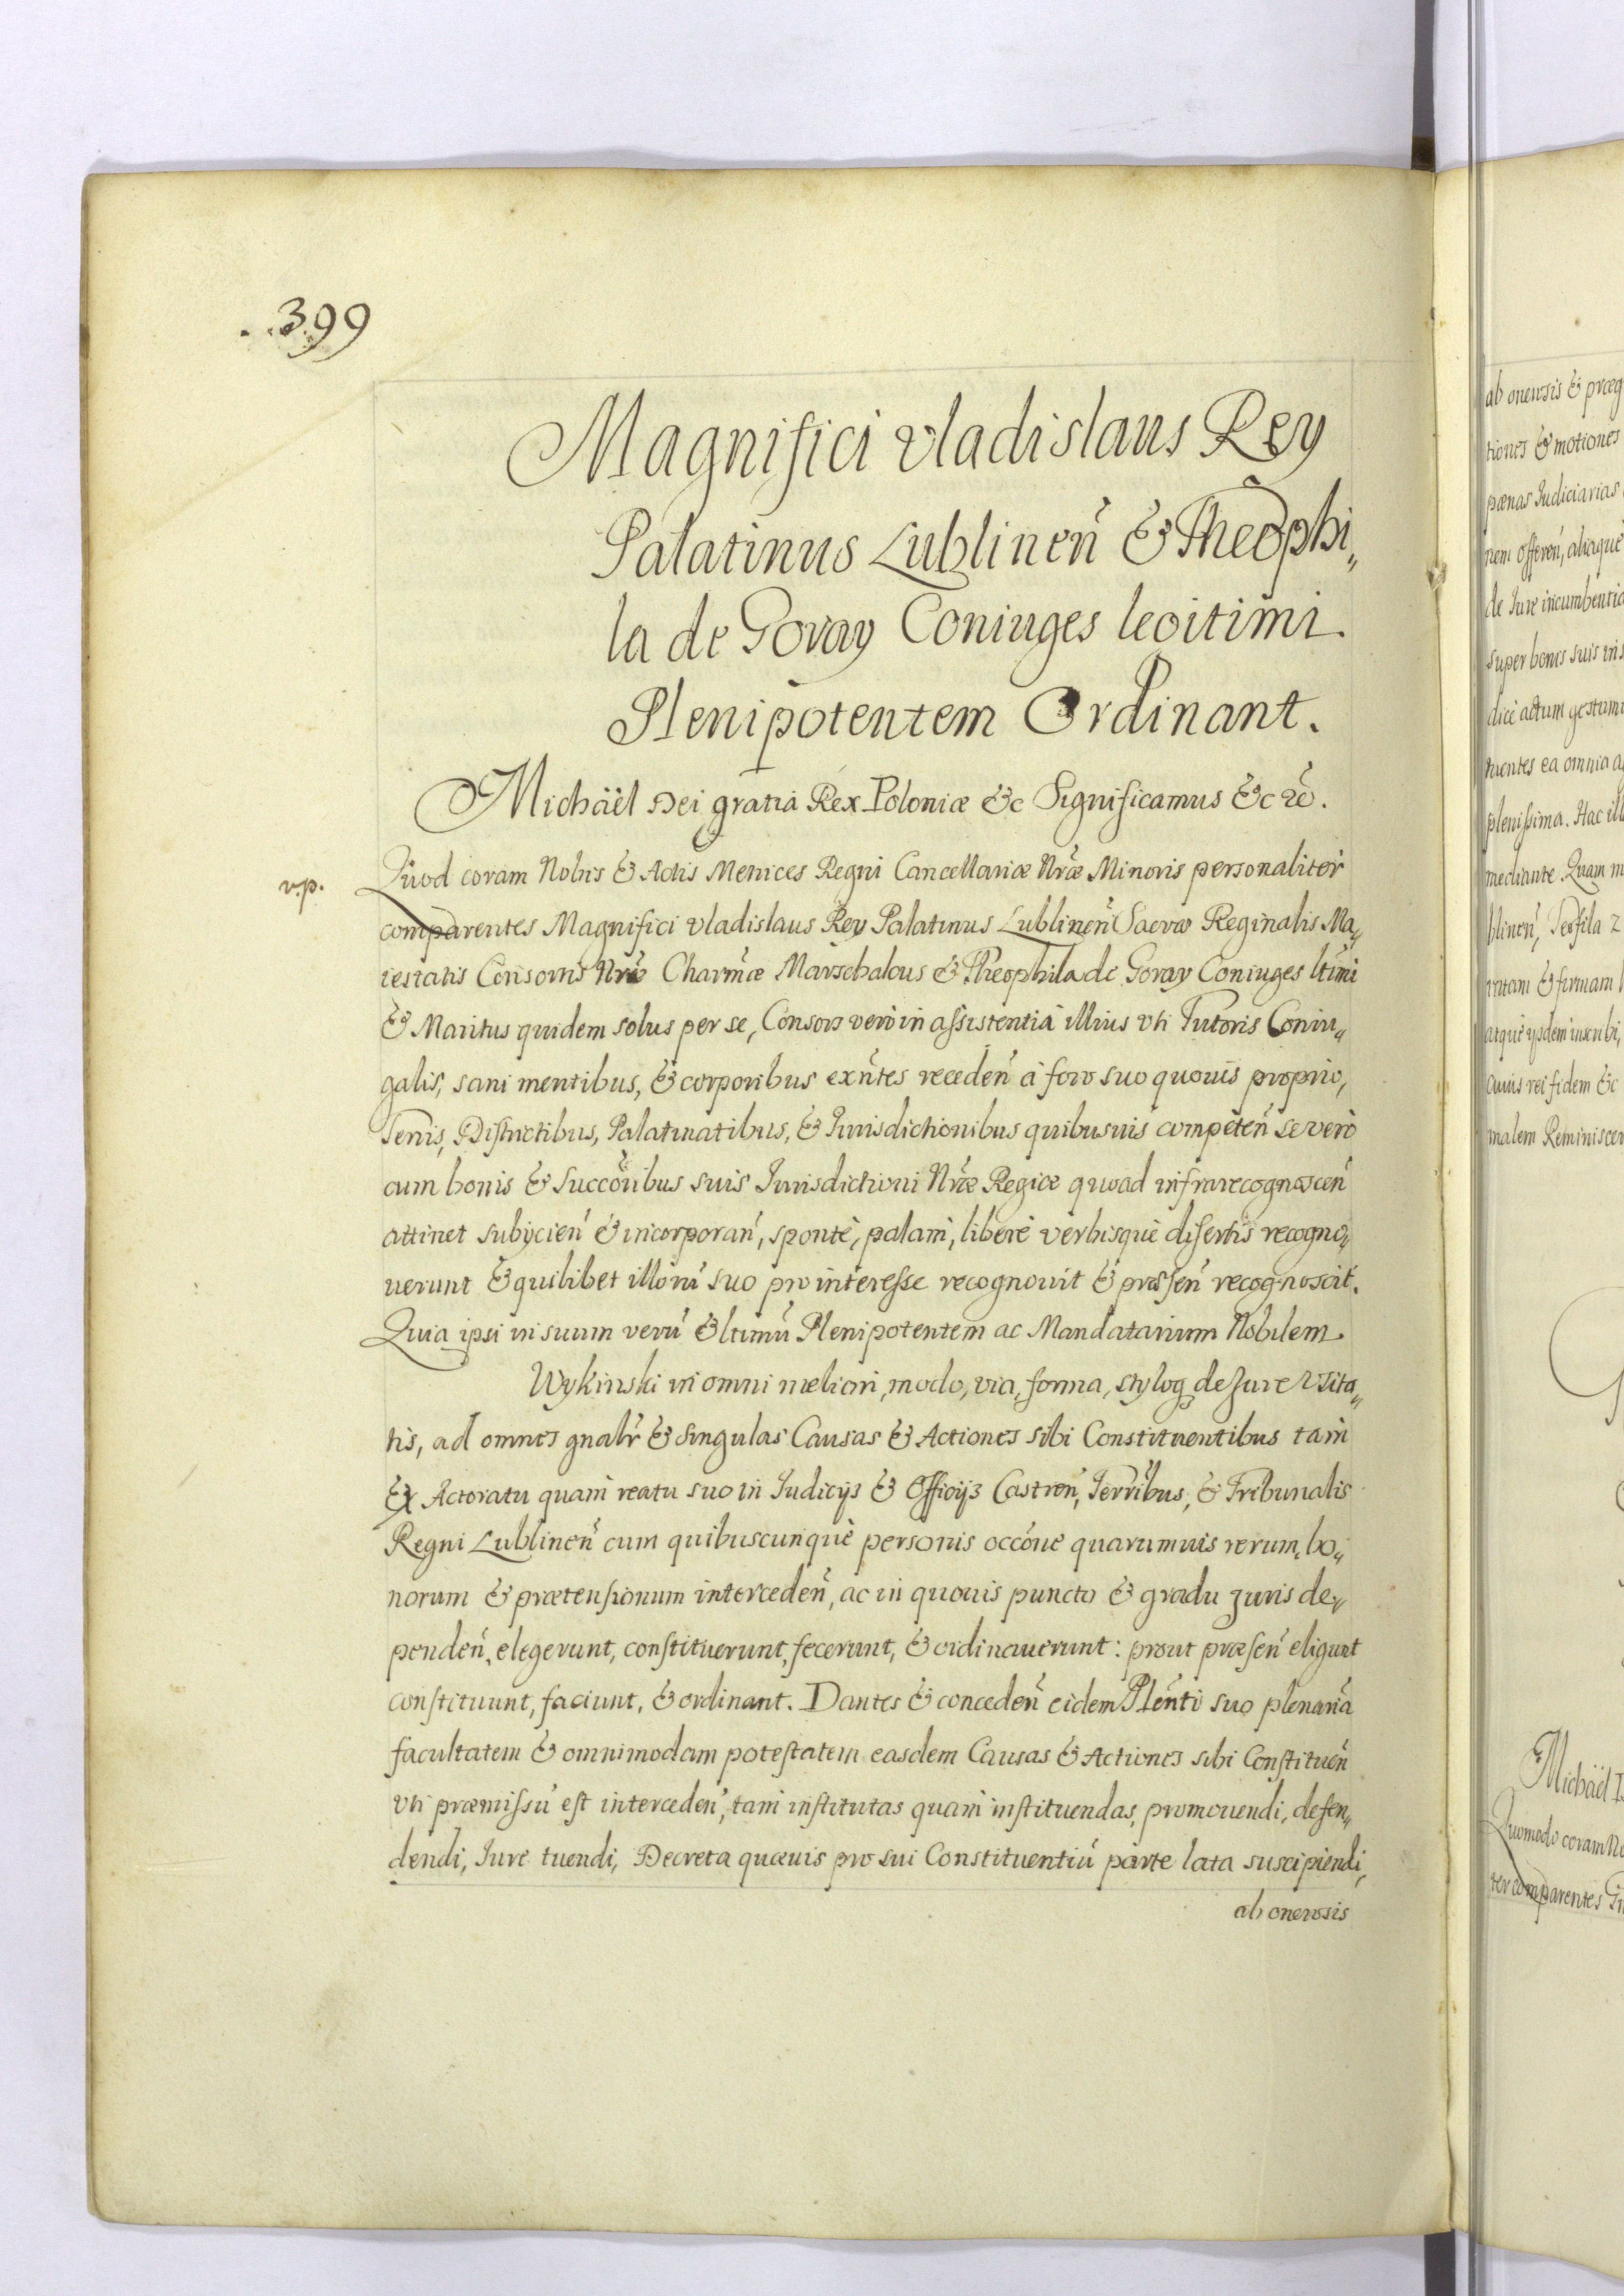 399
Magnifici Vladislaus Rey
Palatinus Lublineñ & Theophi„
la de Goray Coniuges legitimi.
Plenipotentem Ordinant.
Michäel Dei gratia Rex Poloniæ &c Significamus &c rc̃.
v.p.
Quod coram Nobis & Actis Metrices Regni Cancellariæ Nr̃æ Minoris personaliter
comparentes Magnifici Vladislaus Rey Palatinus Lublineñ Sacræ Reginalis Ma„
iestatis Consortis Nr̃æ Charm̃æ Marschalcus & Theophila de Goray Coniuges ltimi
& Maritus quidem solus per se, Consors vero in assistentia illius vti Tutoris Coniu„
galis, sani mentibus, & corporibus exñtes recedeñ à foro suo quouis proprio,
Terris, Districtibus, Palatinatibus, & Iurisdictionibus quibusuis competeñ se verò
cum bonis & succõribus suis Iurisdictioni Nr̃æ Regiæ quoad infrarecognosceñ
attinet subijcieñ & incorporañ, spontè, palam, liberè verbisquè disertis recogno„
uerunt & quilibet illorũ suo pro interesse recognouit & præseñ recognoscit.
Quia ipsi in suum verũ & ltimũ Plenipotentem ac Mandatarium Nobilem
Wykinski in omni meliori, modo, via, forma, styloq₃ de Jure vsita„
tis, ad omnes gñalr & singulas Causas & Actiones sibi Constituentibus tam
ex Actoratu quam reatu suo in Iudicijs & Officijs Castreñ, Terribus, & Tribunalis
Regni Lublineñ cum quibuscunquè personis occõne quarumuis rerum, bo„
norum & prætensionum intercedeñ, ac in quouis puncto & gradu Iuris de„
pendeñ, elegerunt, constituerunt, fecerunt, & ordinauerunt: prout præseñ eligunt
constituunt, faciunt, & ordinant. Dantes & concedeñ eidem Plẽnti suo plenariã
facultatem & omnimodam potestatem easdem Causas & Actiones sibi Constitueñ
vti præmissũ est intercedeñ, tam institutas quam instituendas, promouendi, defen„
dendi, Iure tuendi, Decreta quæuis pro sui Constituentiũ parte lata suscipiendi,
ab onerosis
ab onerosis & præg
tiones & motiones
pœnas Iudiciarias
nem offereñ, aliaque
de Iure incumbentia
super bonis suis ins
dicè actum gestum
tuentes ea omnia a
plenissima. Hac ill
mediante. Quam
blineñ,
ratam & firmam
atquè ijsdem inscribi,
Cuius rei fidem &c
malem Reminiscer
Michäel
Quomodo coram No
ter comparentes